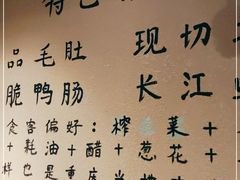 特色
品毛肚 现切
脆鸭肠 长江
食客偏好：榨菜+
+耗油+醋+葱花+
样也是重庆